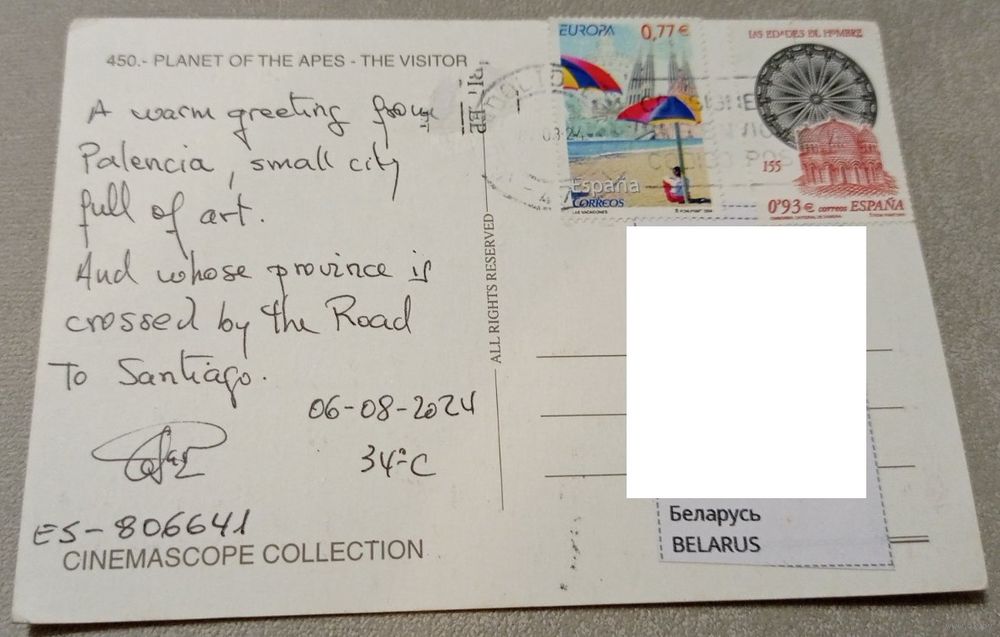 450.- PLANET OF THE APES - THE VISITOR
A warm greeting from
Palencia, small city
full of art.
And whose province is
crossed by the Road
To Santiago.
06-08-2024
34ºC
ES-806641
CINEMASCOPE COLLECTION
ALL RIGHTS RESERVED
EUROPA 0,77€
España
CORREOS
LAS VACACIONES
LAS EDADES DEL HOMBRE
155
0'93€ correos ESPAÑA
CODIGO POS
Беларусь
BELARUS